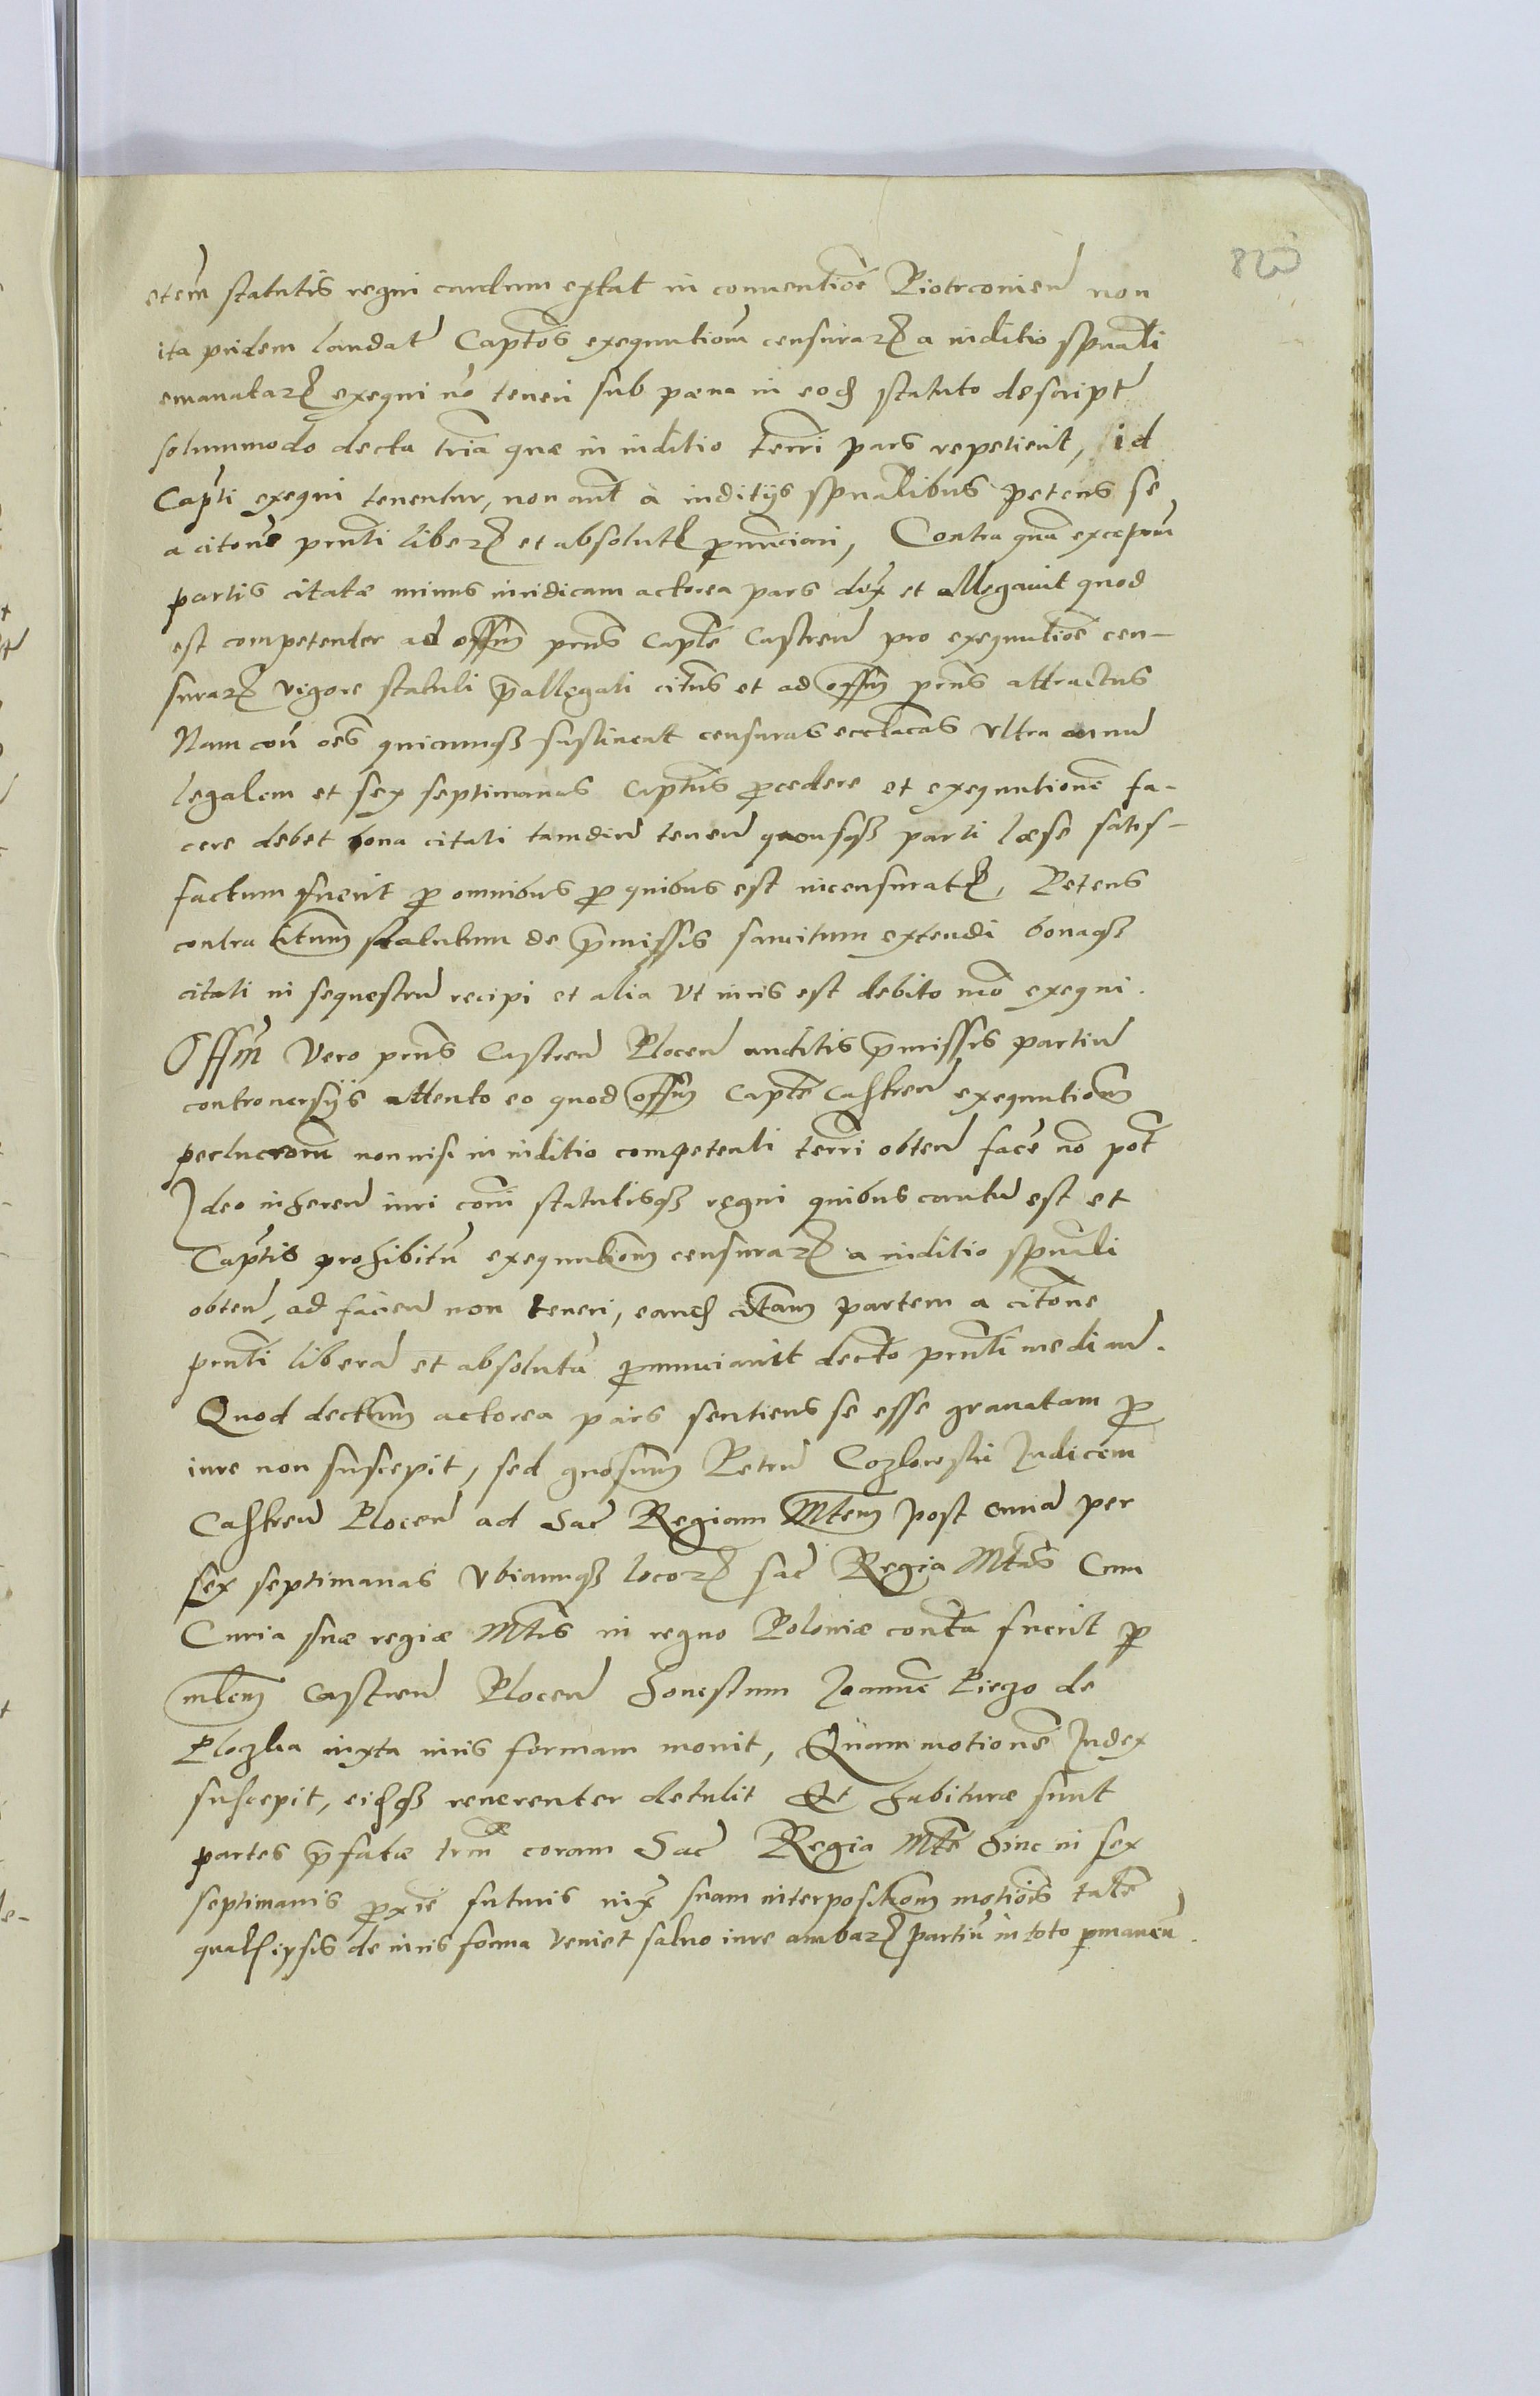 82
etem̄ statutis regni cautum extat in conuentiōe Piotrconień non
ita pridem laudaṫ Captōs exequutiom̄ censuraꝝ a iuditio spūali
emanataꝝ exequi nō teneri sub pœna in eoꝺ statuto descripṫ
solummodo decta tria quæ in iuditio terrī pars repetierit, id
Capti exequi tenentur, non aut̄ à iuditijs spūalibus petens se
a citōne pnti liberꝝ et absolutꝝ ꝓnunciari, Contra quā exceptiōn̄
partis citatæ minus iuridicam actorea pars dix̄ et allegauit quod
est competenter ad offm̄ pn̄s Captē Castreń pro exequutiōe cen-
suraꝝ vigore statuti p̄allegati citus et ad offm̄ pn̄s attractus
Nam cōn̄ oēs quicunqꝫ sustineat censuras ecclācas vltra annū
legalem et sex septimanas Captūs ꝓcedere et exequutionē fa-
cere debet bona citati tamdiū teneń quousqꝫ parti læse satis-
factum fuerit ꝓ omnibus ꝓ quibus est incensuratꝰ, Petens
contra citum̄ statutum de p̄missis sancitum extendi bonaqꝫ
citati in sequestrū recipi et alia vt iuris est debito mō exequi.
Offm̄ vero pn̄s Castreń Ploceń auditis p̄missis partiū
controuersijs attento eo quod offm̄ Captē Castreń exequutiom̄
perlucrorū nonnisi in iuditio competenti terrī obteń facē nō pōt
Ideo inhereń iuri cōni statutisqꝫ regni quibus cautū est et
Captis prohibitū exequutiom̄ censuraꝝ a iuditio spūali
obteń, ad facień non teneri, eanꝺ citam̄ partem a citōne
pnti liberā et absolutā ꝓnunciauit decto pnti mediań.
Quod dectum̄ actorea pars sentiens se esse grauatam ꝓ
iure non suscepit, sed gnosum̄ Petrū Cozlowski Iudicem
Castreń Ploceń ad Sac̄ Regiam Mtem̄ post omīa per
sex septimanas vbicunqꝫ locoꝝ sac̄ Regia Mtās Cum
Curia suæ regiæ Mtis in regno Poloniæ conta fuerit ꝑ
mlem̄ Castreń Ploceń honestum Ioannē Piego de
Ploczka iuxta iuris formam mouit, Quam motionē Iudex
suscepit, eiꝺqꝫ reuerenter detulit Et habituræ sunt
partes p̄fatæ trm̄ coram Sac̄ Regia Mtē hinc in sex
septimanis ꝓxiē futuris iux̄ suam interpositiom̄ motiōis talē
qualꝭ ipsis de iuris forma veniet saluo iure ambaꝝ partiū in toto ꝑmaneń.